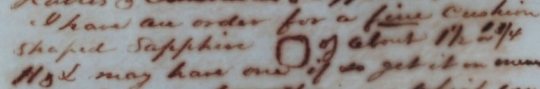 I have an order for a fine cushion
shaped Sapphire of about 1½ to 1¾
may have one if so get it on